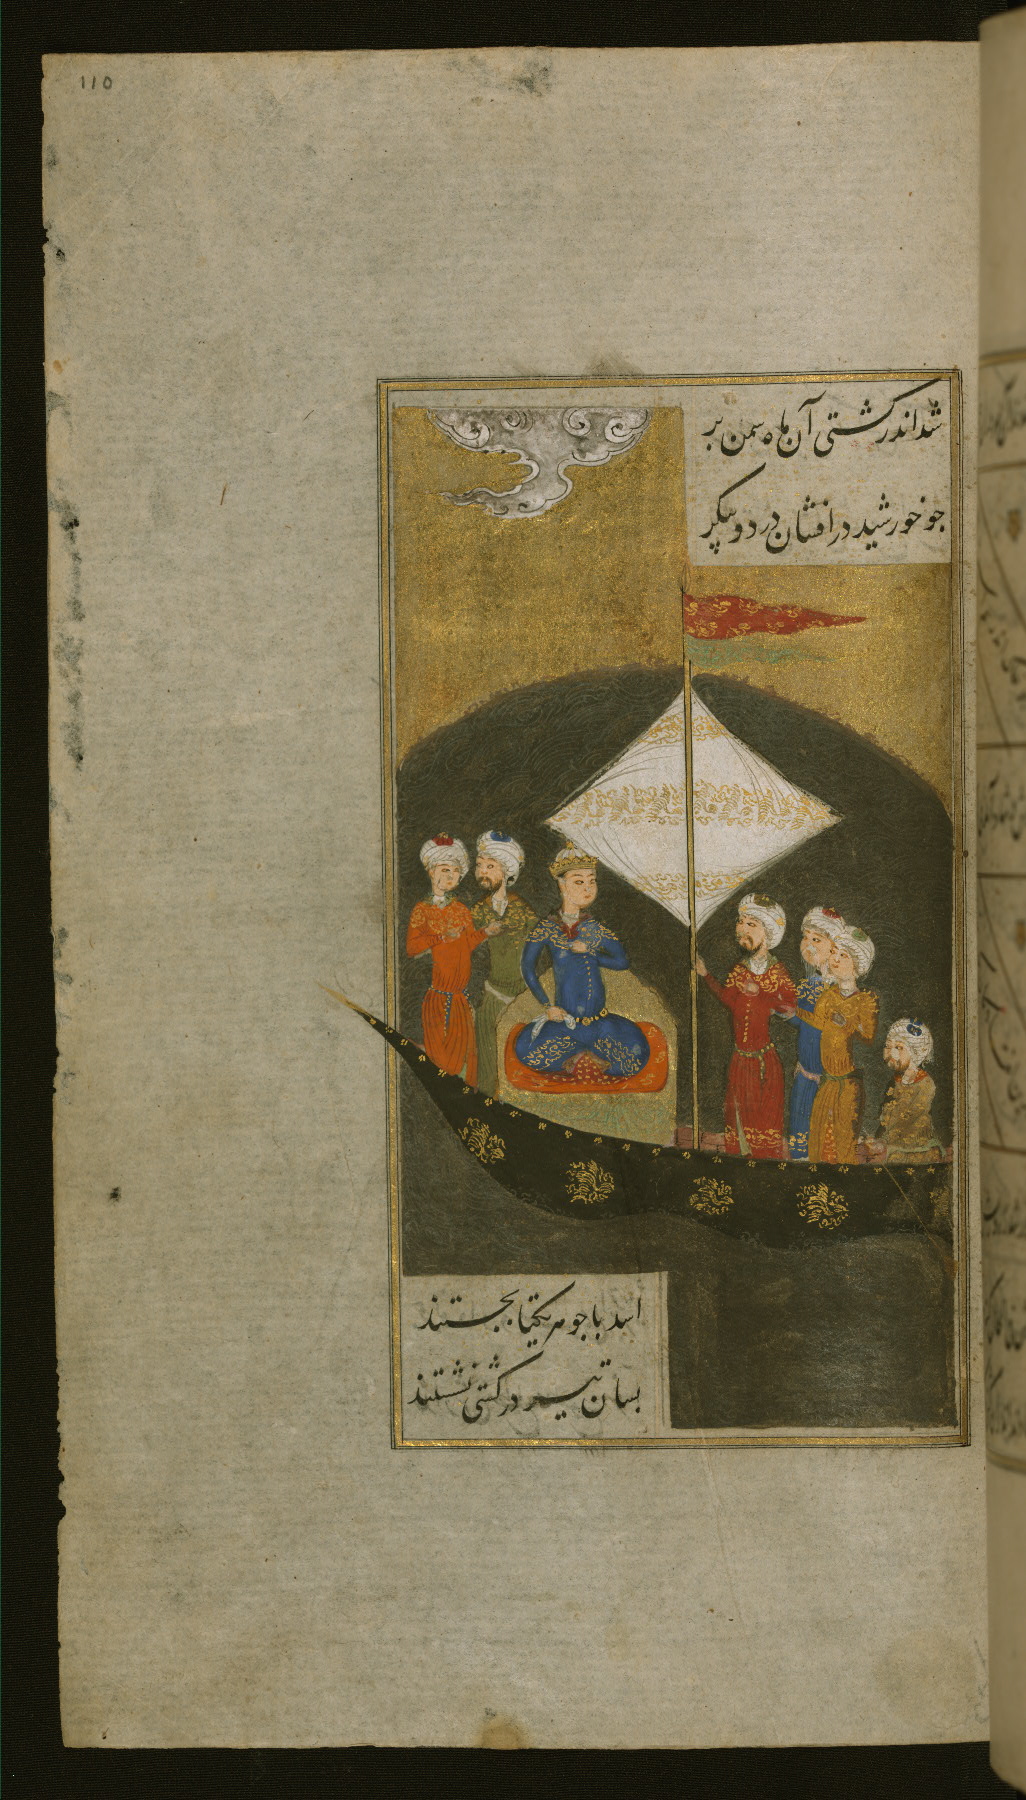 110
شد اندر کشتی آن ماه سمن بر
جو خورشید در افشان در دو پیکر
اسد با جو مریکتا بجستند
بسان تیر در کشتی نشستند